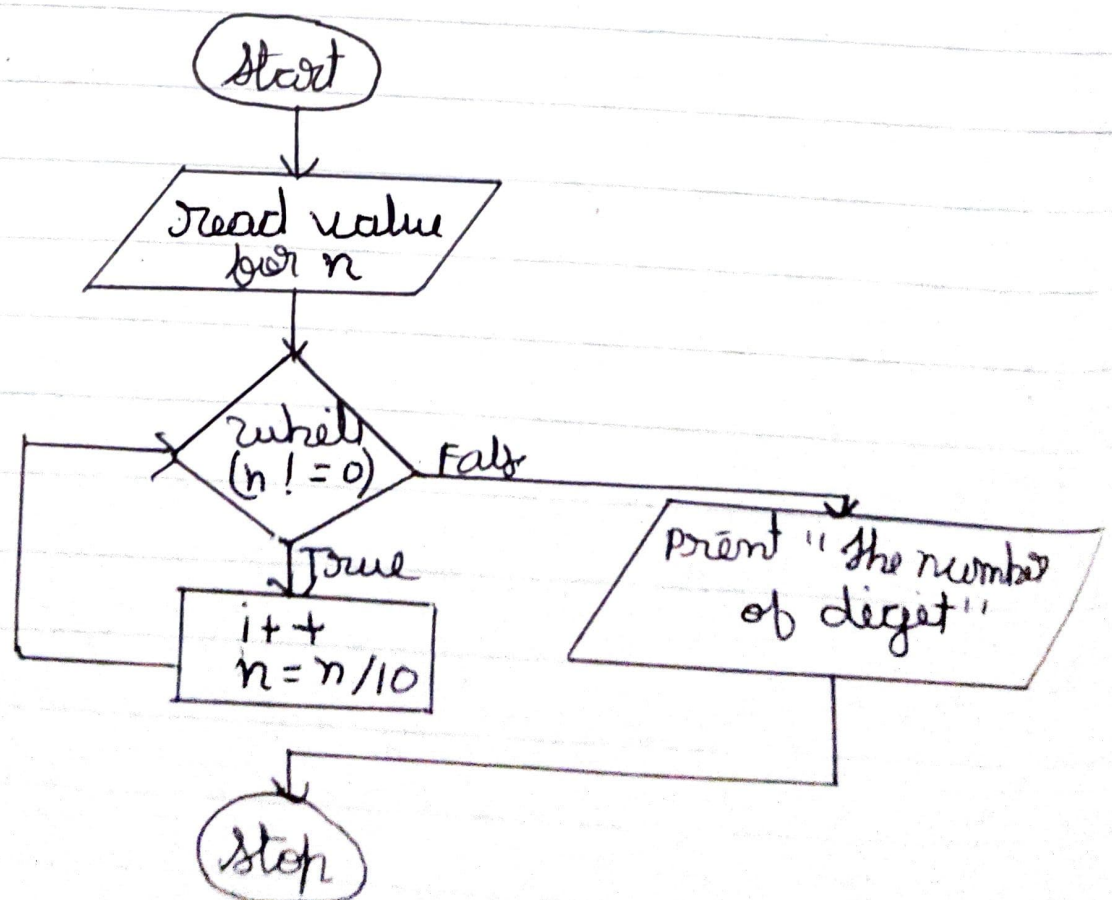 Start
read value
for n
while
(n != 0)
False
True
i++
n = n/10
Print "the number
of digit"
Stop